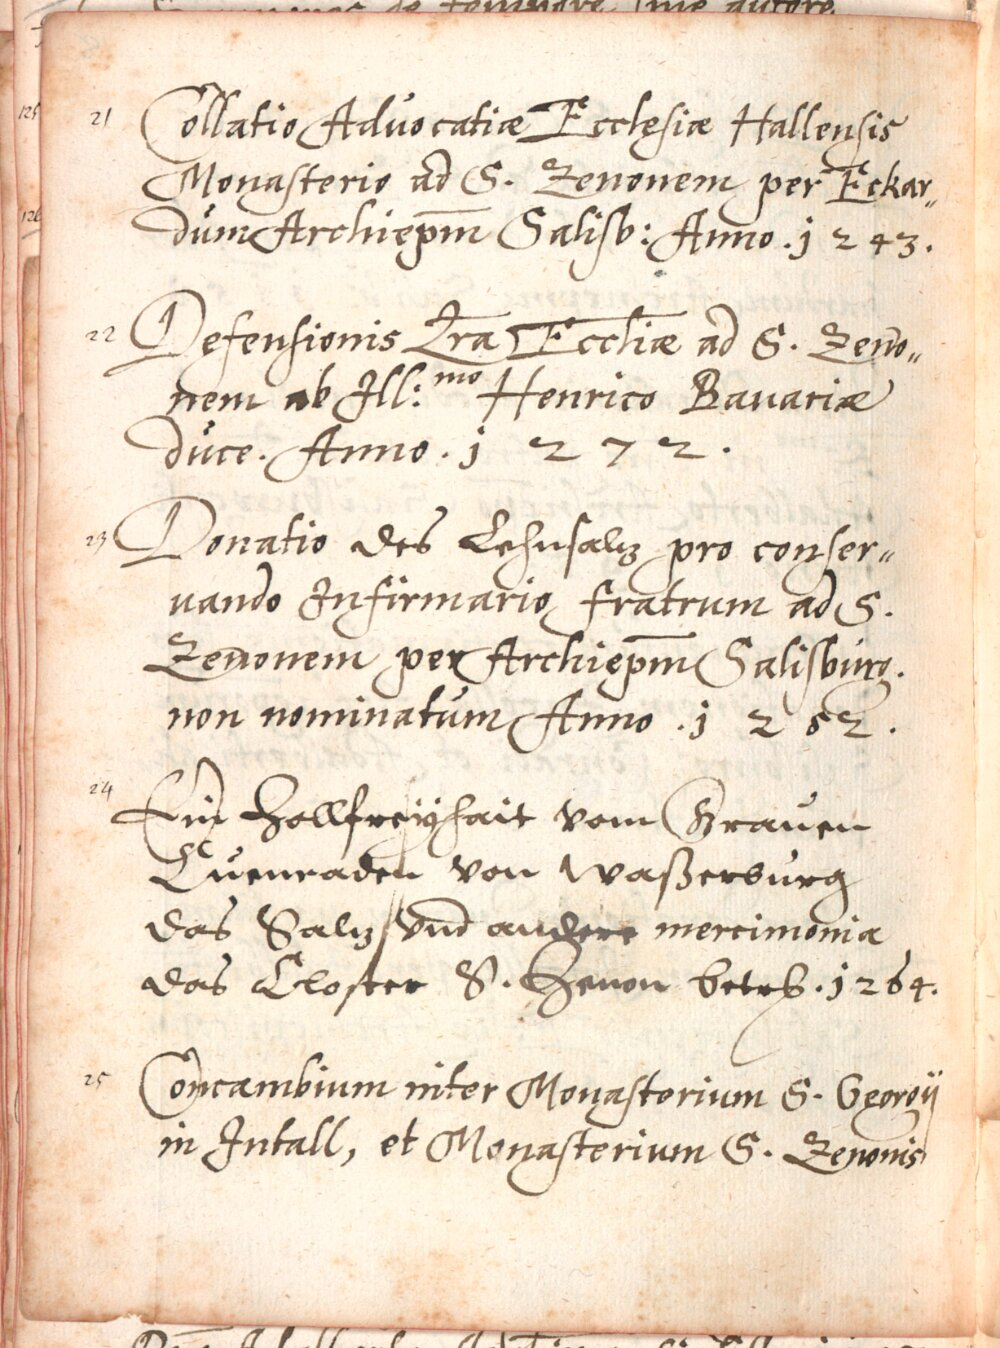 21 Collatio Advocatiæ Ecclesiæ Hallensis
Monasterio ad S. Zenonem per Eckar„
dum Archiepm̃ Salisb: Anno . 1243.
22 Defensionis Lr̃a Eccl̃iæ ad S. Zeno„
nem ab Ill:mo Henrico Bauariæ
duce. Anno . 1272.
23 Donatio des Lehnsaltz pro conser„
uando Infirmario fratrum ad S.
Zenonem per Archiepm̃ Salisburg.
non nominatum Anno . 1252.
24 Ein Zollfreyhait vom Grauen
Cuenraden von Waßerburg
das Saltz vnd andere mercimonia
das Closter S. Zenon betrh. 1264.
25 Concambium inter Monasterium S. Georgij
in Intall, et Monasterium S. Zenonis
125
126